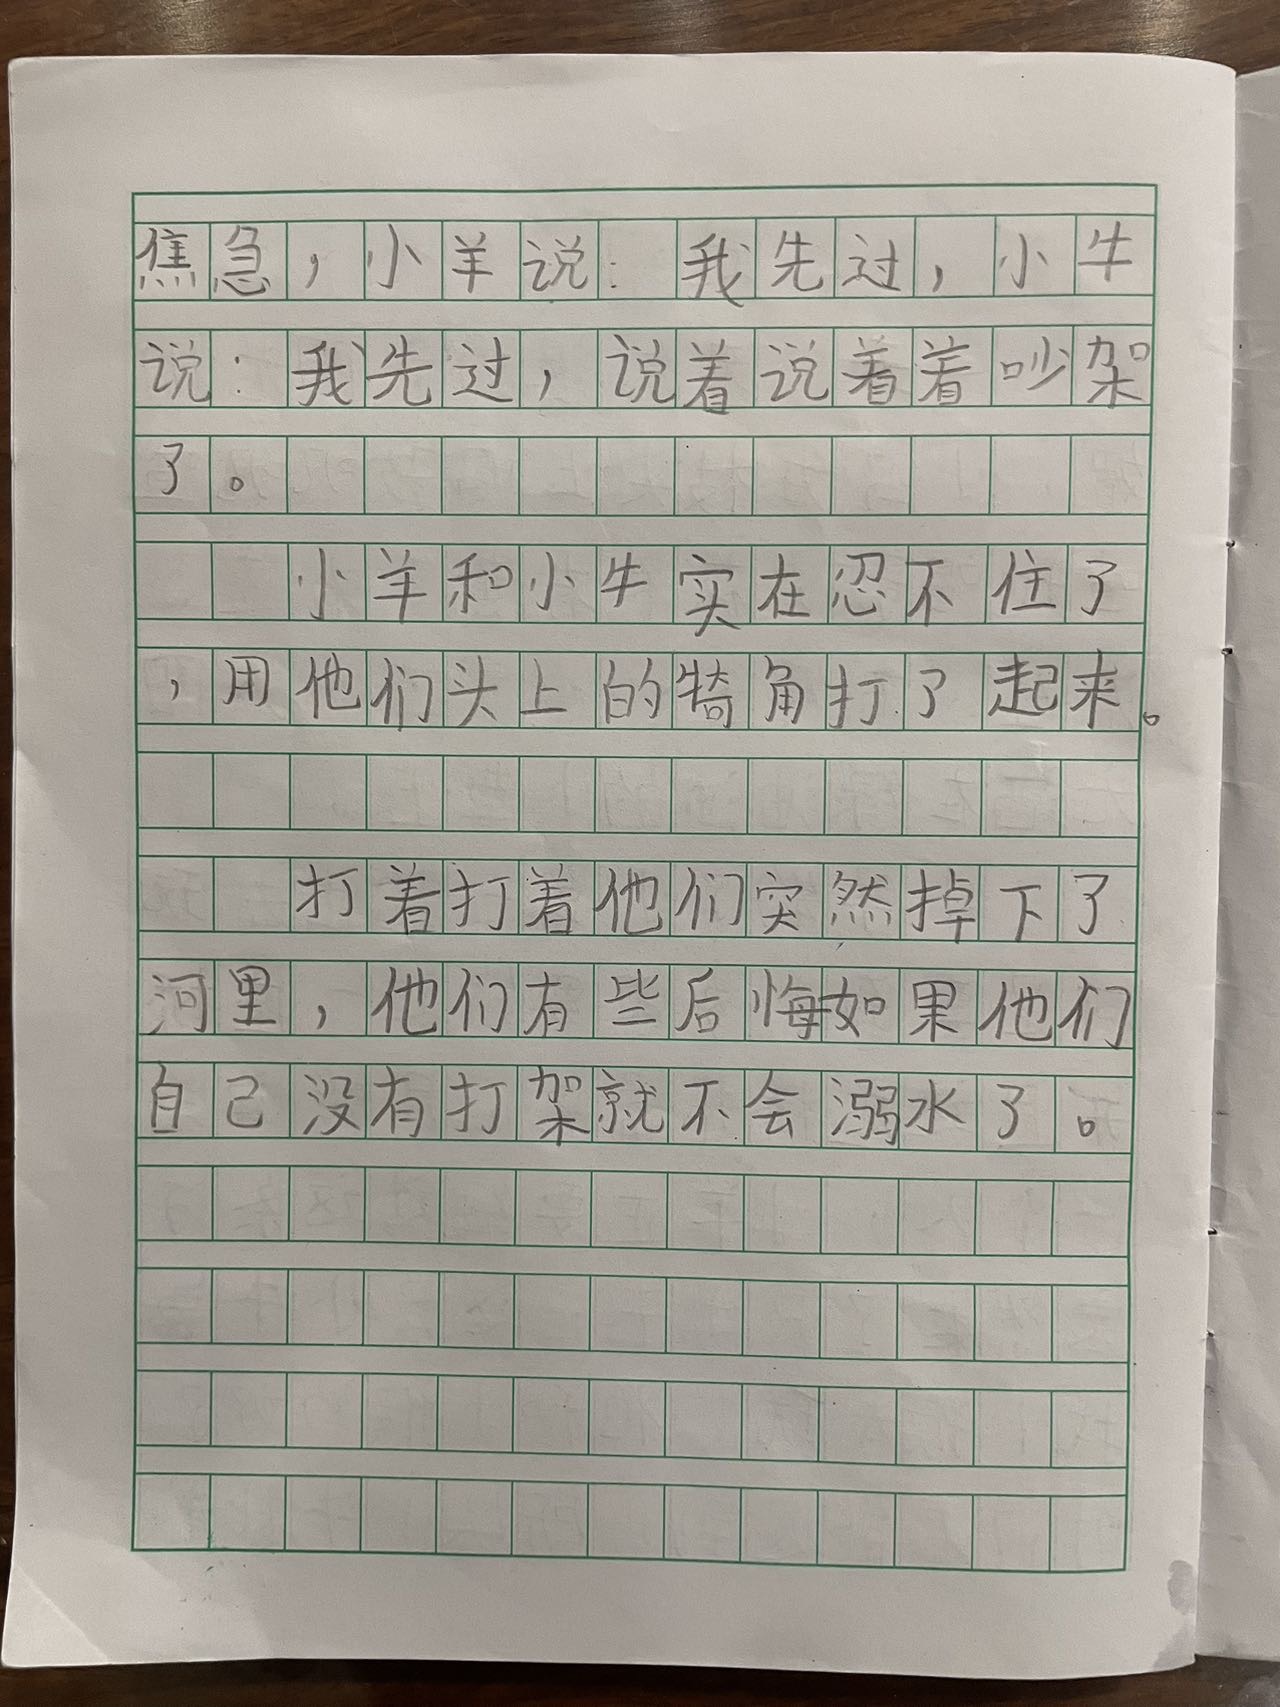 焦急，小羊说：我先过，小牛
说：我先过，说着说着着吵架
了。
小羊和小牛实在忍不住了
，用他们头上的犄角打了起来。
打着打着他们突然掉下了
河里，他们有些后悔如果他们
自己没有打架就不会溺水了。